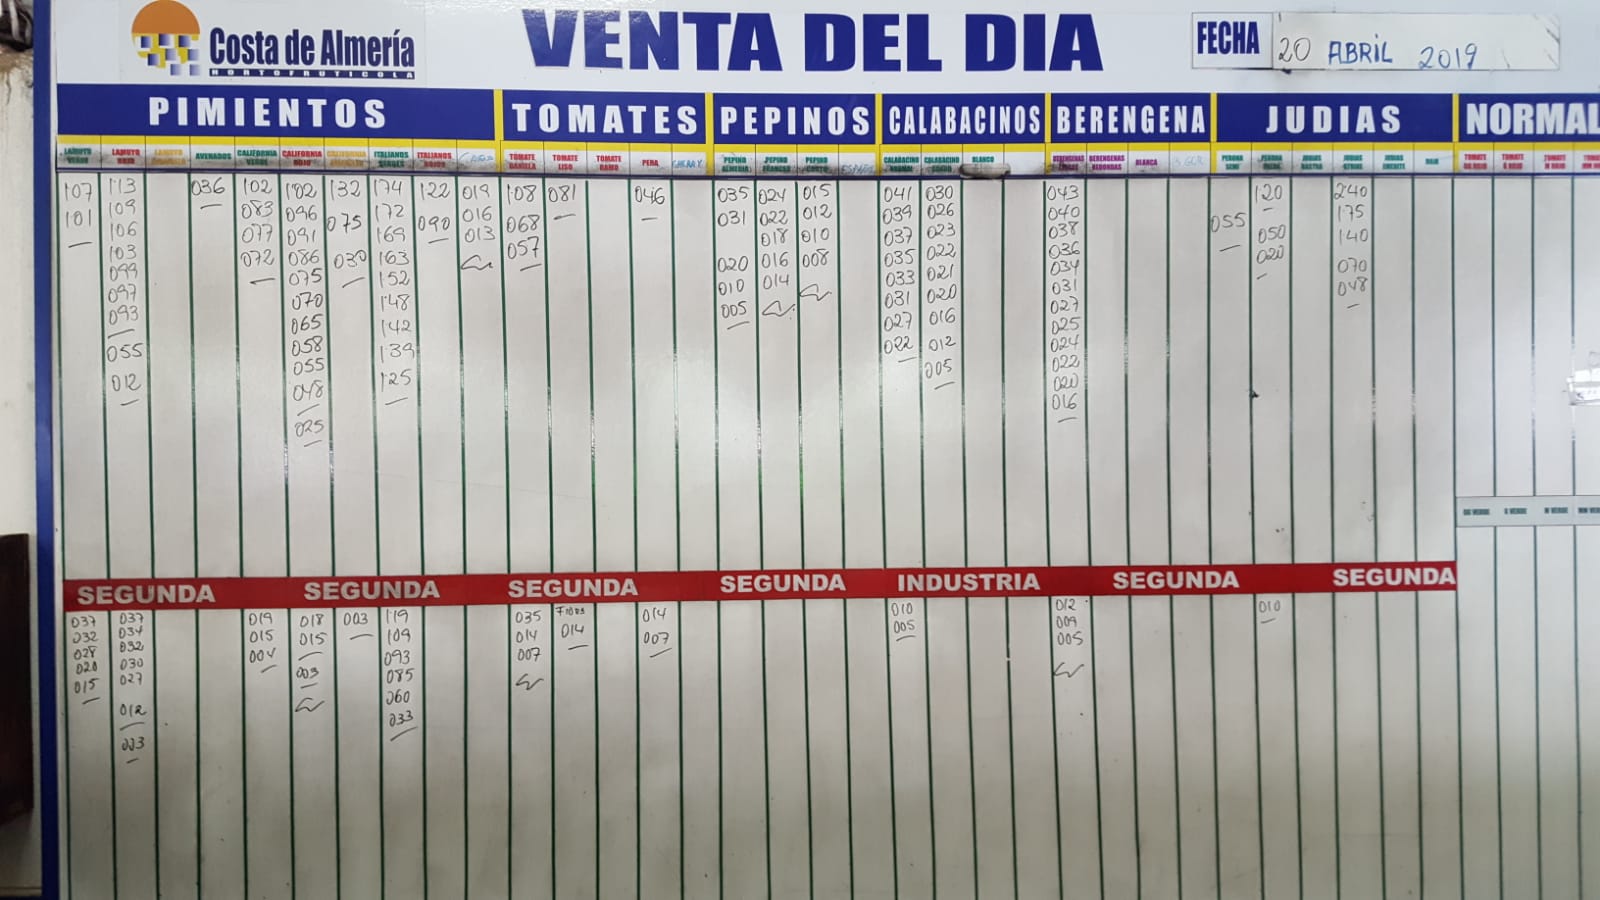 Costa de Almería
HORTOFRUTICOLA
VENTA DEL DIA
FECHA 20 ABRIL 2019
PIMIENTOS TOMATES PEPINOS CALABACINOS BERENGENA JUDIAS NORMAL
LAMUYO VERDE
LAMUYO ROJO
AVENADOS
CALIFORNIA VERDE
CALIFORNIA ROJO
ITALIANOS VERDES
ITALIANOS ROJOS
TOMATE DANIELA
TOMATE LISO
TOMATE RAMO
PERA
PEPINO ALMERIA
PEPINO FRANCES
PEPINO CORTO
CALABACINO NORMAL
CALABACINO GORDO
BLANCO
BERENGENAS REDONDAS
BLANCA
PERONA SEMI
107
101
113
109
106
103
099
097
093
055
012
036
102
083
077
072
102
096
091
086
075
070
065
058
055
048
025
132
075
030
174
172
169
163
152
148
142
139
125
122
090
019
016
013
108
068
057
081
046
035
031
020
010
005
024
022
018
016
014
015
012
010
008
041
039
037
035
033
031
027
022
030
026
023
022
021
020
016
012
005
043
040
038
036
034
031
027
025
024
022
020
016
055
120
050
020
240
175
140
070
048
GG VERDE G VERDE M VERDE
SEGUNDA SEGUNDA SEGUNDA SEGUNDA INDUSTRIA SEGUNDA SEGUNDA
037
032
028
020
015
037
034
032
030
027
012
003
019
015
004
018
015
003
003
119
109
093
085
060
033
035
014
007
014
014
007
010
005
012
009
005
010